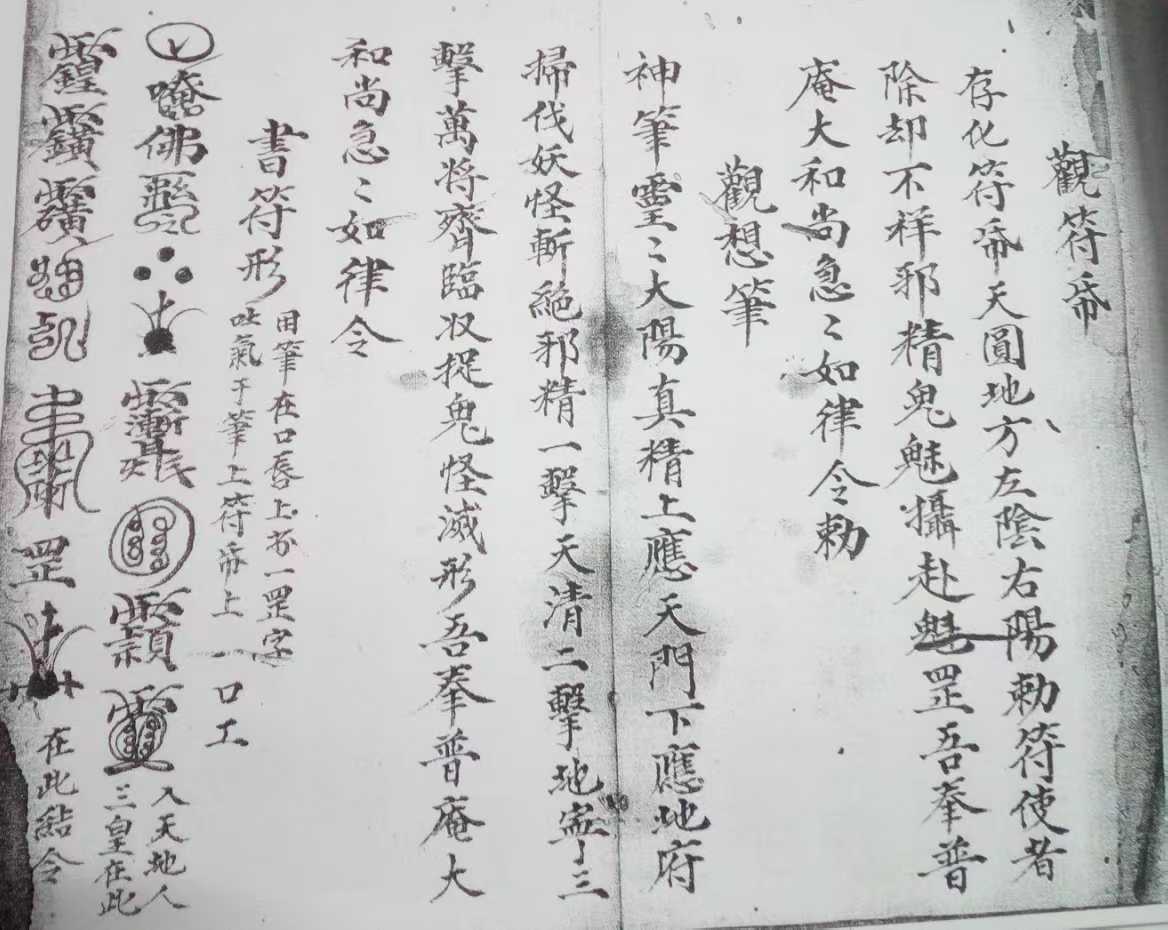 觀符帋
存化符帋天圓地方左陰右陽勅符使者
除却不祥邪精鬼魅攝赴魁罡吾奉普
庵大和尚急〻如律令勅
觀想筆
神筆靈〻大陽真精上應天門下應地府
掃伐妖怪斬絕邪精一擊天清二擊地寧三
擊萬將齊臨収捉鬼怪滅形吾奉普庵大
和尚急〻如律令
書符形
用筆在口唇上亦一罡字
吐氣于筆上符帋上
一口工
佛
入天地人
三皇在此
罡
在此結令